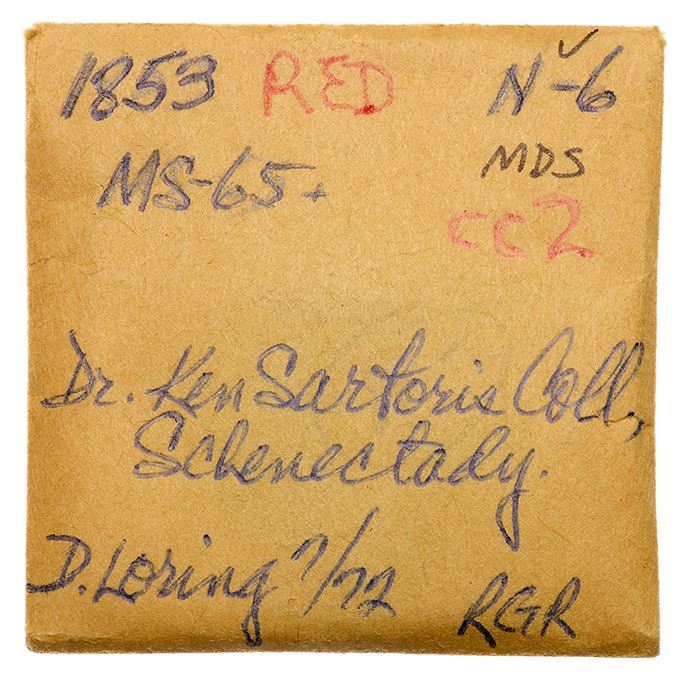 1853 RED N-6
MS-65+ MDS
CC2
Dr. Ken Sartoris Coll,
Schenectady.
D. Loring 7/72 RGR